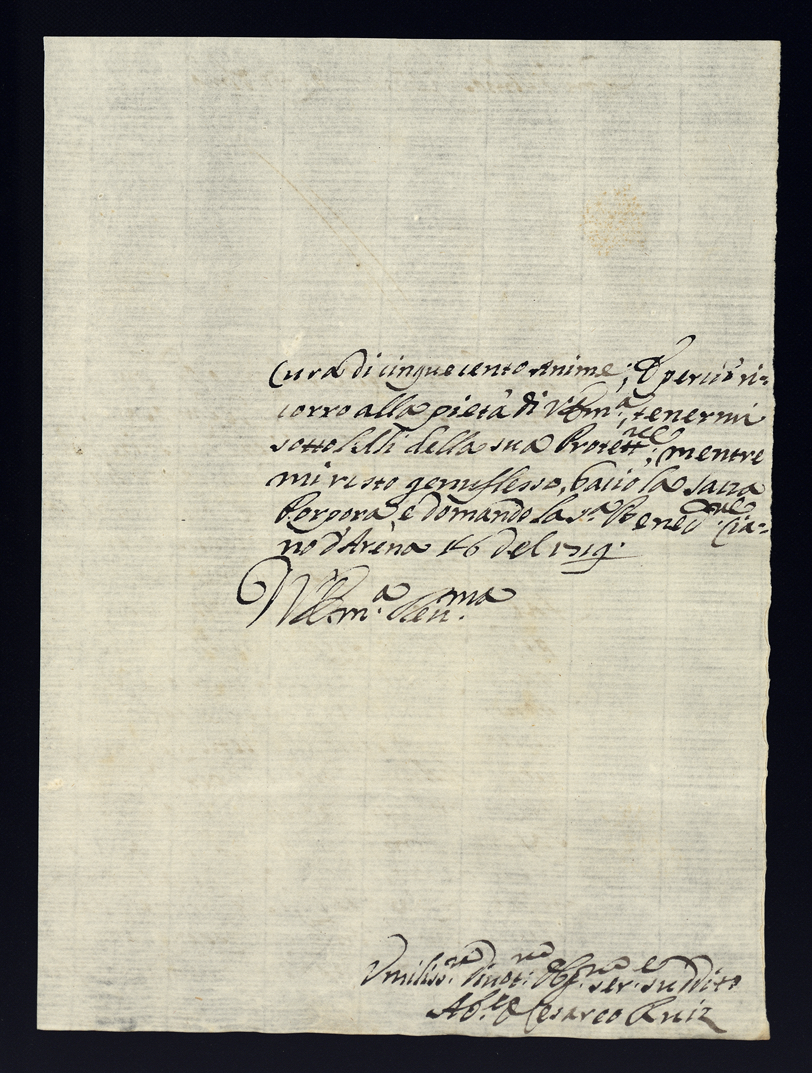 Cura di cinque cento Anime; E perciò ri=
corro alla pietà di V. Em.ª, tenermi
sotto l'Ali della sua Protett.ne; mentre
mi resto genuflesso, bacio la sacra
Porpora, e domando la s.ª Bened.ne Cia=
no d'Arena 16 del 1719.
V. Em.ª Rev.ma
Umiliss.mo Divot.mo Obl.mo ser.e suddito
Ab.e D Cesareo Ruiz